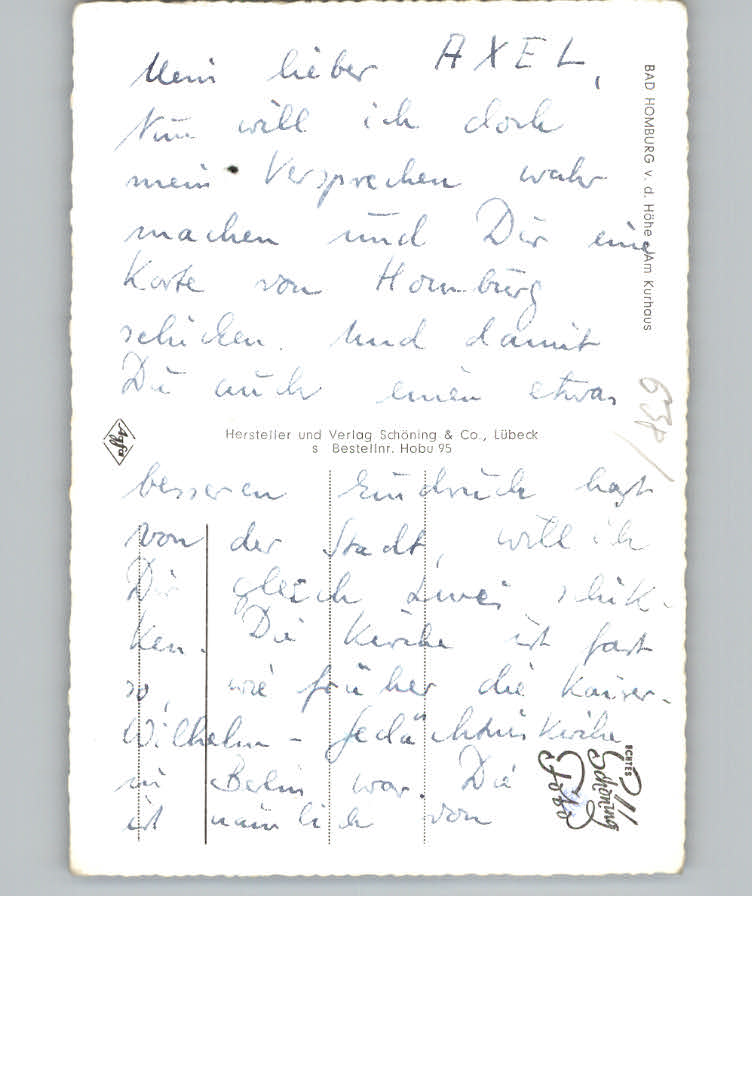 Mein lieber AXEL,
Nun will ich doch
mein Versprechen wahr
machen und Dir eine
Karte von Homburg
schicken. Und damit
Du auch einen etwas
Hersteller und Verlag Schöning & Co., Lübeck
s Bestellnr. Hobu 95
besseren Eindruck hast
von der Stadt, will ich
Dir gleich zwei schik-
ken. Die Kirche ist fast
so, wie früher die Kaiser-
Wilhelm-Gedächtniskirche
in Berlin war. Die
ist nämlich von
BAD HOMBURG v. d. Höhe Am Kurhaus
Agfa
ECHTES
Schöning
Foto